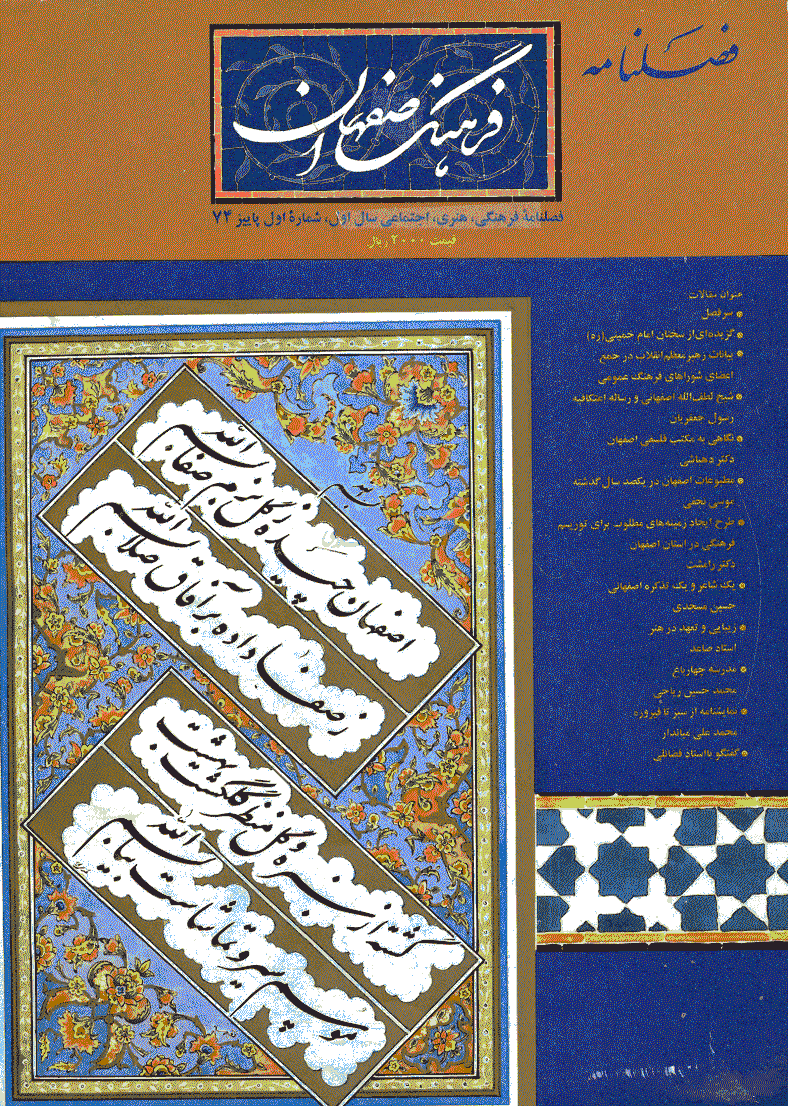 فصلنامه
فرهنگ اصفهان
فصلنامهٔ فرهنگی، هنری، اجتماعی سال اول، شمارهٔ اول پاییز ۷۴
قیمت ۲۰۰۰ ریال
عنوان مقالات
سرفصل
گزیده‌ای از سخنان امام خمینی (ره)
بیانات رهبر معظم انقلاب در جمع
اعضای شوراهای فرهنگ عمومی
شیخ لطف‌الله اصفهانی و رساله اعتکافیه
رسول جعفریان
نگاهی به مکتب فلسفی اصفهان
دکتر دهباشی
مطبوعات اصفهان در یکصد سال گذشته
موسی نجفی
طرح ایجاد زمینه‌های مطلوب برای توریسم
فرهنگی در استان اصفهان
دکتر رامشت
یک شاعر و یک تذکره اصفهانی
حسین مسجدی
زیبایی و تعهد در هنر
استاد صاعد
مدرسه چهارباغ
محمد حسین ریاحی
نمایشنامه از سبز تا فیروزه
محمد علی میاندار
گفتگو با استاد فضائلی
اصفهان چیده ز گل بزم صفا بسم الله
ز صفا داده بر آفاق صلا بسم الله
گشته از سبزه و گل منظر گلگشت بهشت
موسم سیر و تماشاست بیا بسم الله